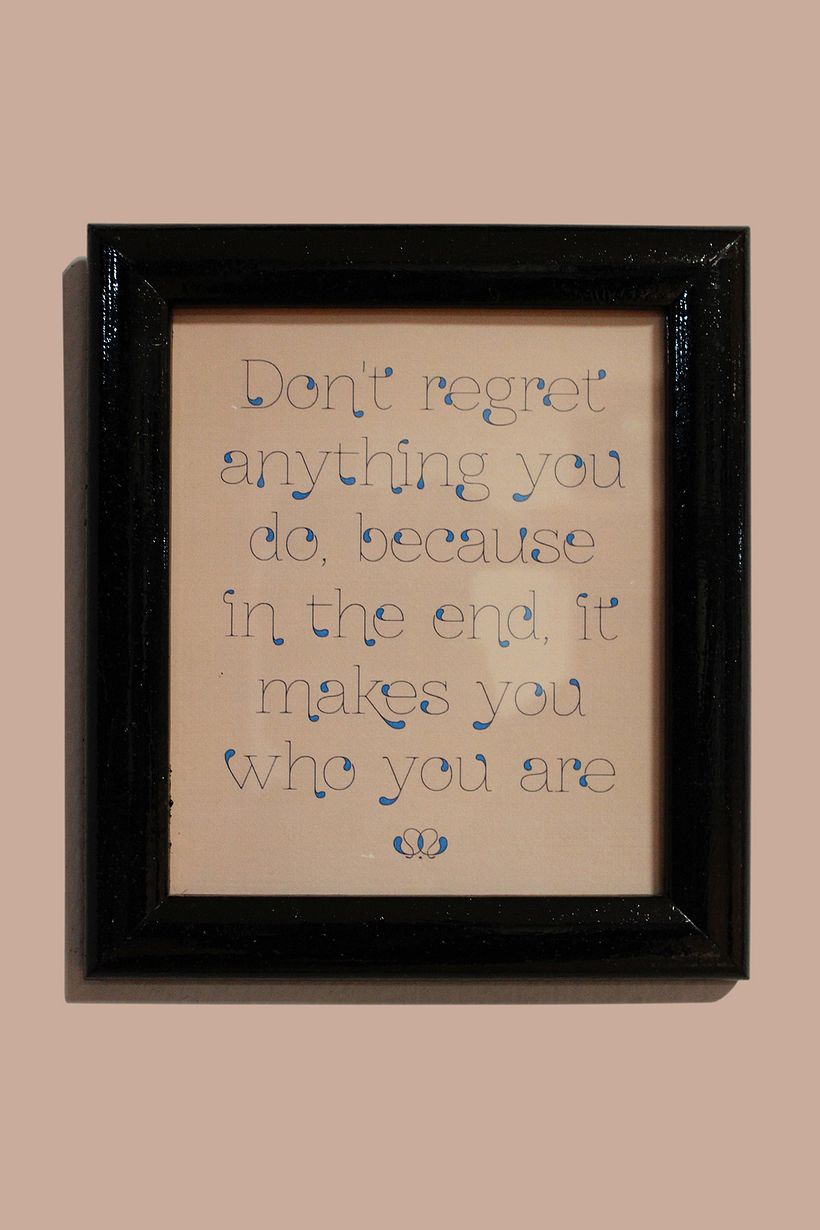 Don't regret
anything you
do, because
in the end, it
makes you
who you are